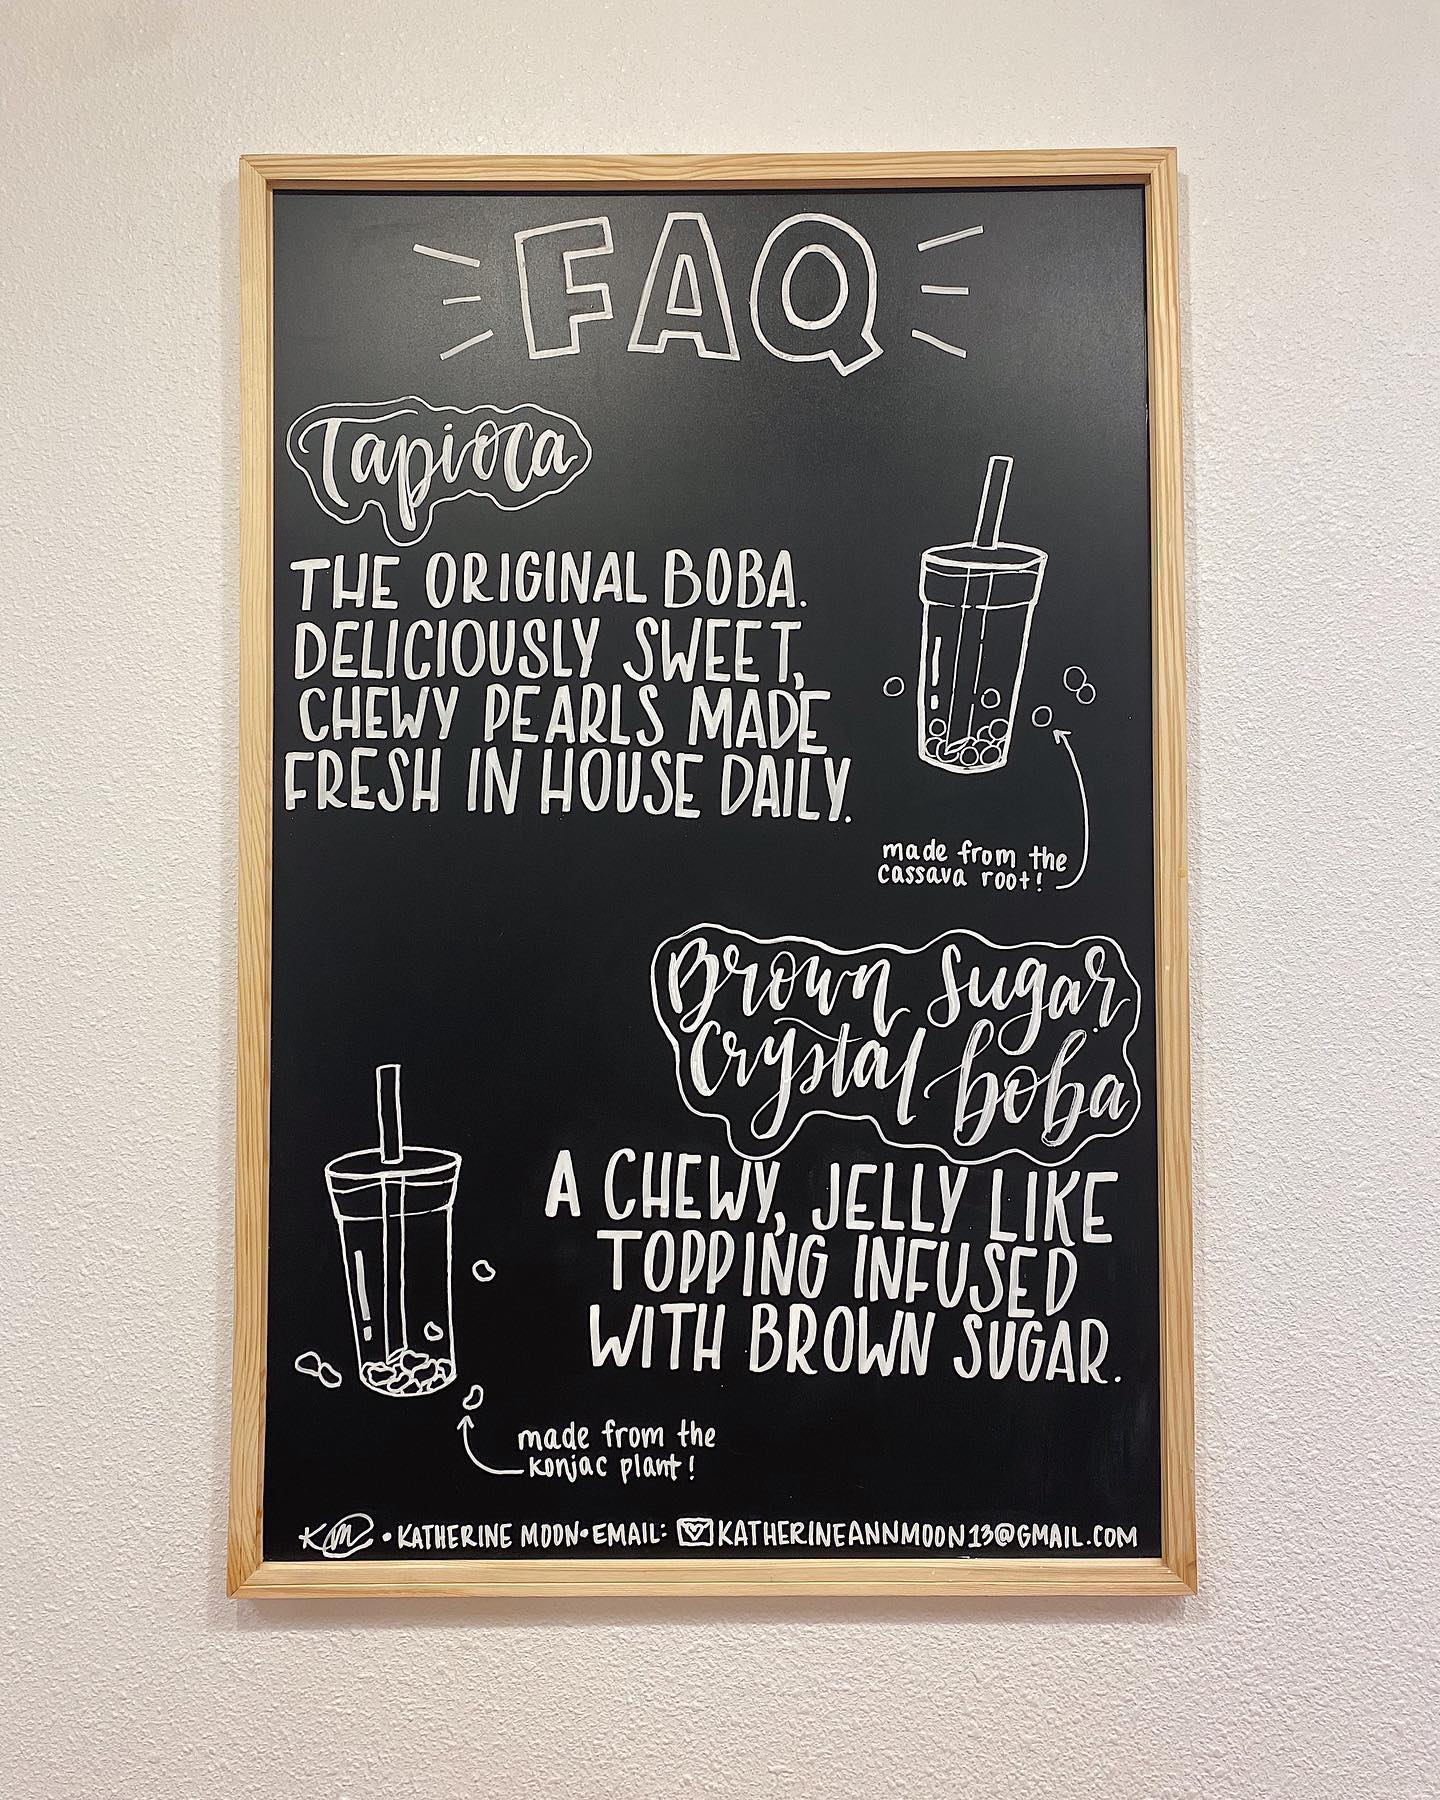 FAQ
Tapioca
THE ORIGINAL BOBA.
DELICIOUSLY SWEET,
CHEWY PEARLS MADE
FRESH IN HOUSE DAILY.
made from the
cassava root!
Brown Sugar
Crystal boba
A CHEWY, JELLY LIKE
TOPPING INFUSED
WITH BROWN SUGAR.
made from the
konjac plant!
KM • KATHERINE MOON • EMAIL: KATHERINEANNMOON13@GMAIL.COM